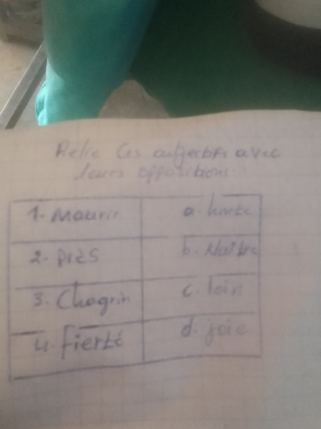 Relie les adjectifs avec
leurs oppositions
1. Mourir a. honte
2. Près b. Naître
3. Chagrin c. loin
4. fierté d. joie